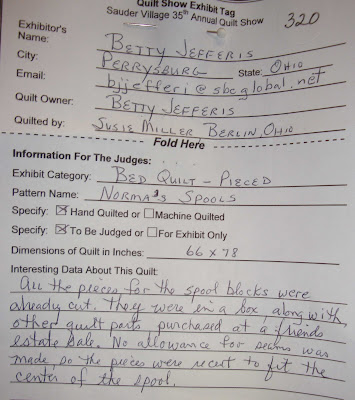 Quilt Show Exhibit Tag
Sauder Village 35th Annual Quilt Show
320
Exhibitor's Name: BETTY JEFFERIS
City: PERRYSBURG State: OHIO
Email: bjjefferi@sbcglobal.net
Quilt Owner: BETTY JEFFERIS
Quilted by: SUSIE MILLER BERLIN, OHIO
Fold Here
Information For The Judges:
Exhibit Category: BED QUILT - PIECED
Pattern Name: NORMA'S SPOOLS
Specify: ☒ Hand Quilted or ☐ Machine Quilted
Specify: ☒ To Be Judged or ☐ For Exhibit Only
Dimensions of Quilt in Inches: 66 x 78
Interesting Data About This Quilt:
All the pieces for the spool blocks were
already cut. They were in a box along with
other quilt parts purchased at a friends
estate sale. No allowance for seams was
made, so the pieces were recut to fit the
center of the spool.